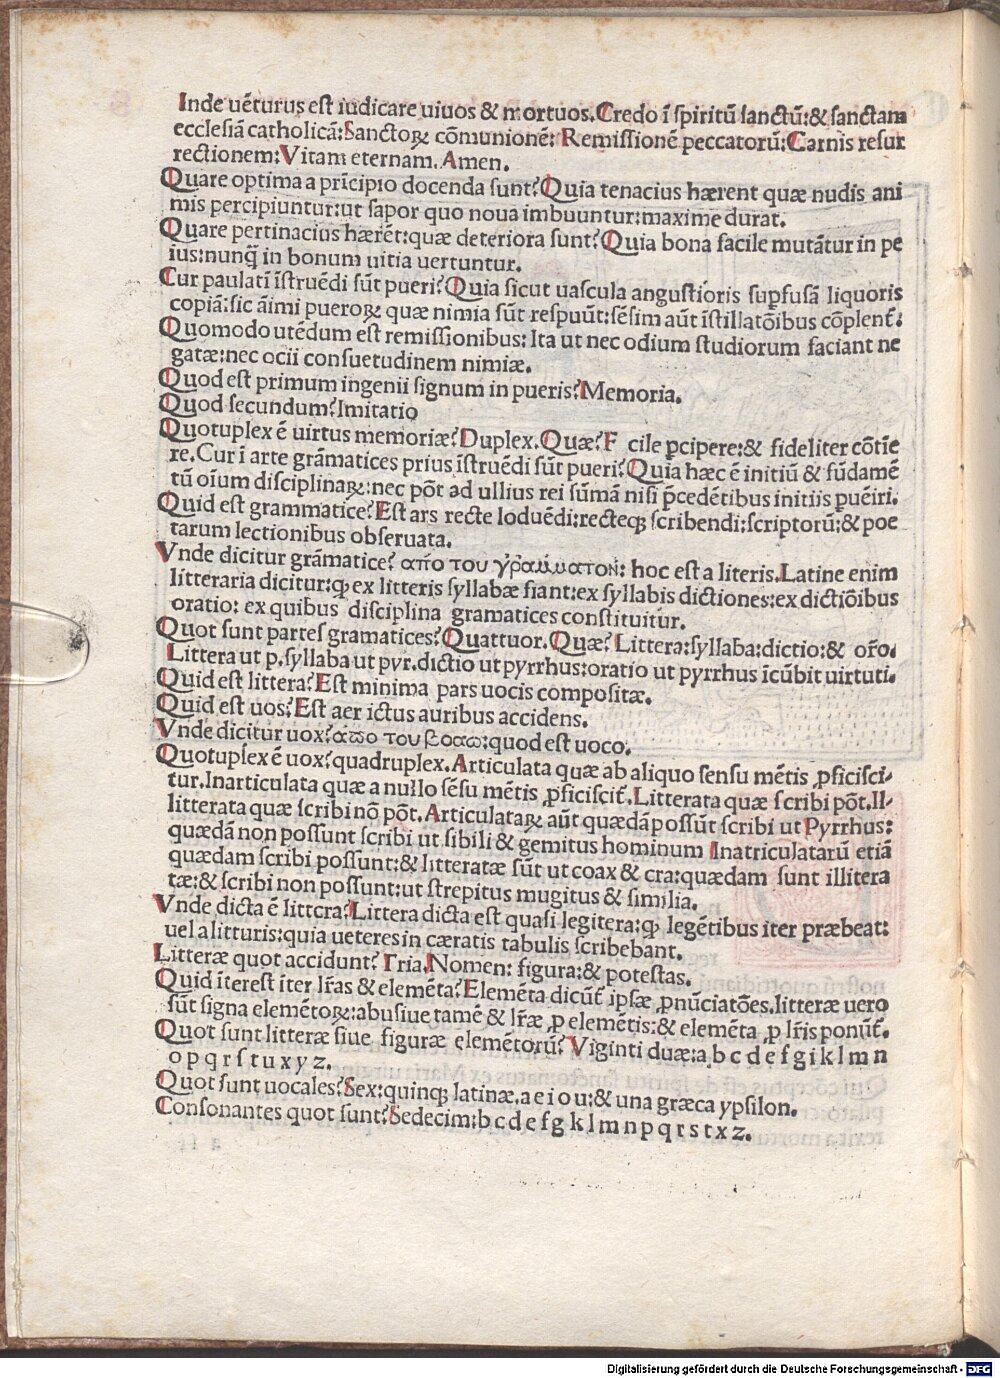 Inde uēturus est iudicare uiuos & mortuos.Credo ī spiritū sanctū:& sanctam
ecclesiā catholicā:Sanctoꝝ cōmunionē: Remissionē peccatorū:Carnis resur
rectionem:Vitam eternam.Amen.
Quare optima a prīcipio docenda sunt?Quia tenacius hærent quæ nudis ani
mis percipiuntur:ut sapor quo noua imbuuntur:maxime durat.
Quare pertinacius hærēt:quæ deteriora sunt?Quia bona facile mutātur in pe
ius:nunq̄ in bonum uitia uertuntur.
Cur paulatī īstruēdi sūt pueri?Quia sicut uascula angustioris supfusā liquoris
copiā:sic āimi pueroꝝ quæ nimia sūt respuūt:sēsim aūt īstillatōibus cōplent̄.
Quomodo utēdum est remissionibus: Ita ut nec odium studiorum faciant ne
gatæ:nec ocii consuetudinem nimiæ.
Quod est primum ingenii signum in pueris?Memoria.
Quod secundum?Imitatio
Quotuplex ē uirtus memoriæ?Duplex.Quæ?F cile ꝑcipere:& fideliter cōtīe
re.Cur ī arte grāmatices prius īstruēdi sūt pueri?Quia hæc ē initiū & fūdamē
tū oīum disciplinaꝝ:nec pōt ad ullius rei sūmā nisi p̄cedētibus initiis puēiri.
Quid est grammatice?Est ars recte loduēdi:recteqꝫ scribendi:scriptorū:& poe
tarum lectionibus obseruata.
Vnde dicitur grāmatice? απο του γραμματον: hoc est a literis.Latine enim
litteraria dicitur:ꝙ ex litteris syllabæ fiant:ex syllabis dictiones:ex dictiōibus
oratio: ex quibus disciplina gramatices constituitur.
Quot sunt partes gramatices?Quattuor.Quæ?Littera:syllaba:dictio:& or̄o.
Littera ut p.syllaba ut pyr.dictio ut pyrrhus:oratio ut pyrrhus īcūbit uirtuti.
Quid est littera?Est minima pars uocis compositæ.
Quid est uos?Est aer ictus auribus accidens.
Vnde dicitur uox?ἀπο του βοαω:quod est uoco.
Quotuplex ē uox?quadruplex.Articulata quæ ab aliquo sensu mētis ꝓficisci-
tur.Inarticulata quæ a nullo sēsu mētis ꝓficiscit̄.Litterata quæ scribi pōt.Il-
litterata quæ scribi nō pōt.Articulataꝝ aūt quædā possūt scribi ut Pyrrhus:
quædā non possunt scribi ut sibili & gemitus hominum Inatriculatarū etiā
quædam scribi possunt:& litteratæ sūt ut coax & cra:quædam sunt illitera
tæ:& scribi non possunt:ut strepitus mugitus & similia.
Vnde dicta ē littcra?Littera dicta est quasi legitera:ꝙ legētibus iter præbeat:
uel a litturis:quia ueteres in cæratis tabulis scribebant.
Litteræ quot accidunt? Tria.Nomen: figura:& potestas.
Quid īterest īter lr̄as & elemēta?Elemēta dicūt̄ ipsæ ꝓnūciatōes.litteræ uero
sūt signa elemētoꝝ:abusiue tamē & lr̄æ ꝓ elemētis:& elemēta ꝓ lr̄is ponūt̄.
Quot sunt litteræ siue figuræ elemētorū?Viginti duæ:a b c d e f g i k l m n
o p q r s t u x y z.
Quot sunt uocales?Sex:quinqꝫ latinæ.a e i o u:& una græca ypsilon.
Consonantes quot sunt?Sedecim:b c d e f g k l m n p q r s t x z.
Digitalisierung gefördert durch die Deutsche Forschungsgemeinschaft - DFG